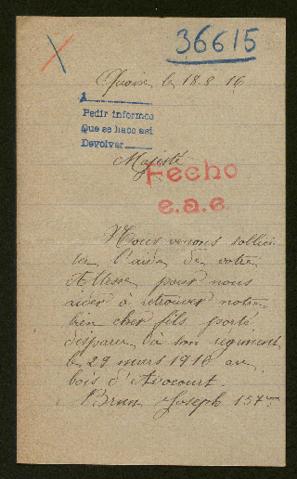 36615
le 18.8.16
A
Pedir informes
Que se hace así
Devolver
Majesté
Fecho
e.a.e.
Nous venons sollici-
ter l'aide de votre
Altesse pour nous
aider à retrouver notre
bien cher fils porté
disparu à son régiment
le 29 mars 1916 au
bois d'Avocourt.
Brun Joseph 157